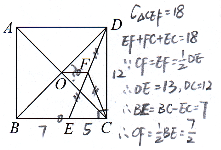 A
D
C△CEF=18
EF+FC+EC=18
∵CF=EF=½DE
∴DE=13, DC=12
∴BE=BC-EC=7
∴OF=½BE=7/2
12
F
O
B
7
E
5
C